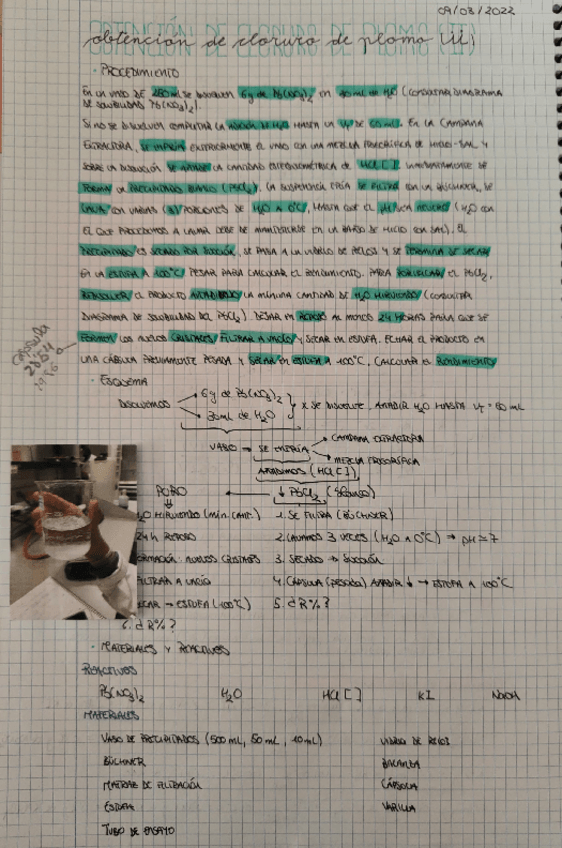 09/03/2022
OBTENCIÓN DE CLORURO DE PLOMO (II)
obtención de cloruro de plomo (ii)
· PROCEDIMIENTO
EN UN VASO DE 250 mL SE DISUELVEN 6g de Pb(NO3)2 EN 30 mL de H2O (CONSULTAR DIAGRAMA
DE SOLUBILIDAD Pb(NO3)2).
SI NO SE DISUELVEN COMPLETAR LA ADICIÓN DE H2O HASTA UN VT DE 60 mL. EN LA CAMPANA
EXTRACTORA, SE ENFRÍA EXTERIORMENTE EL VASO CON UNA MEZCLA FRIGORÍFICA DE HIELO-SAL Y
SOBRE LA DISOLUCIÓN SE AÑADE LA CANTIDAD ESTEQUIOMÉTRICA DE HCl [ ]. INMEDIATAMENTE SE
FORMA UN PRECIPITADO BLANCO (PbCl2). LA SUSPENSIÓN FRÍA SE FILTRA CON UN BÜCHNER, SE
LAVA CON VARIAS (3) PORCIONES DE H2O A 0°C, HASTA QUE EL pH SEA NEUTRO (H2O CON
EL QUE PROCEDEMOS A LAVAR DEBE DE MANTENERSE EN UN BAÑO DE HIELO CON SAL). EL
PRECIPITADO ES SECADO POR SUCCIÓN, SE PASA A UN VIDRIO DE RELOJ Y SE TERMINA DE SECAR
EN LA ESTUFA A 100°C PESAR PARA CALCULAR EL RENDIMIENTO. PARA PURIFICAR EL PbCl2,
REDISOLVER EL PRODUCTO AÑADIENDO LA MÍNIMA CANTIDAD DE H2O HIRVIENDO (CONSULTAR
DIAGRAMA DE SOLUBILIDAD DEL PbCl2) DEJAR EN REPOSO AL MENOS 24 HORAS PARA QUE SE
FORMEN LOS NUEVOS CRISTALES FILTRAR A VACÍO Y SECAR EN ESTUFA. ECHAR EL PRODUCTO EN
UNA CÁPSULA PREVIAMENTE PESADA Y SECAR EN ESTUFA A 100°C. CALCULAR EL RENDIMIENTO
CÁPSULA
· ESQUEMA
DISOLVEMOS
6g de Pb(NO3)2
30 mL de H2O
X SE DISUELVE. AÑADIR H2O HASTA VT = 60 mL
VASO → SE ENFRÍA
CAMPANA EXTRACTORA
MEZCLA FRIGORÍFICA
AÑADIMOS (HCl [ ])
PURO ← ↓ PbCl2 (BLANCO)
H2O HIRVIENDO (MÍN. CANT.)
1. SE FILTRA (BÜCHNER)
24 h REPOSO
2. LAVAMOS 3 VECES (H2O A 0°C) → pH = 7
FORMACIÓN NUEVOS CRISTALES
3. SECADO → SUCCIÓN
FILTRAR A VACÍO
4. CÁPSULA (PESADA) AÑADIR ↓ → ESTUFA A 100°C
SECAR → ESTUFA (100°C)
5. ¿R%?
6. ¿R%?
· MATERIALES Y REACTIVOS
REACTIVOS
Pb(NO3)2 H2O HCl [ ] KI NaOH
MATERIALES
VASO DE PRECIPITADOS (500 mL, 50 mL, 10 mL)
VIDRIO DE RELOJ
BÜCHNER
BALANZA
MATRAZ DE FILTRACIÓN
CÁPSULA
ESTUFA
VARILLA
TUBO DE ENSAYO